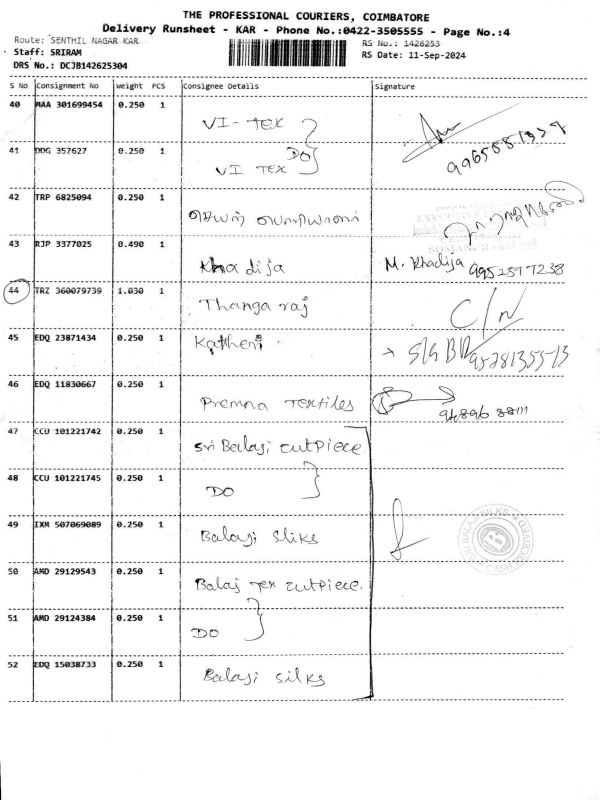 THE PROFESSIONAL COURIERS, COIMBATORE
Delivery Runsheet - KAR - Phone No.:0422-3505555 - Page No.:4
Route: SENTHIL NAGAR KAR
RS No.: 1426253
Staff: SRIRAM
RS Date: 11-Sep-2024
DRS No.: DCJB142625304
S No Consignment No Weight PCS Consignee Details Signature
40 MAA 301699454 0.250 1 VI-TEX
41 DDG 357627 0.250 1 DO VI TEX
42 TRP 6825094 0.250 1
43 RJP 3377025 0.490 1 Khadija M. Khadija 9952597238
44 TRZ 360079739 1.030 1 Thangaraj C/N
45 EDQ 23871434 0.250 1
46 EDQ 11830667 0.250 1 Premna Textiles
47 CCU 101221742 0.250 1 Sri Balaji cutpiece
48 CCU 101221745 0.250 1 DO
49 IXM 507069089 0.250 1 Balaji Sliks
50 AMD 29129543 0.250 1 Balaj Tex cutpiece.
51 AMD 29124384 0.250 1 DO
52 EDQ 15038733 0.250 1 Balaji silks